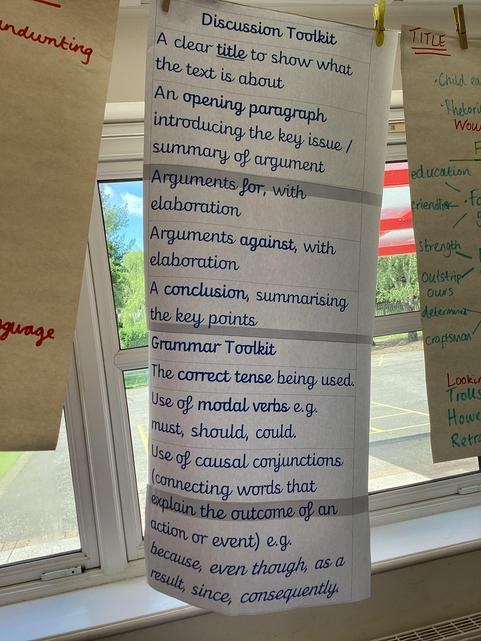 Discussion Toolkit
A clear title to show what
the text is about
An opening paragraph
introducing the key issue /
summary of argument
Arguments for, with
elaboration
Arguments against, with
elaboration
A conclusion, summarising
the key points
Grammar Toolkit
The correct tense being used.
Use of modal verbs e.g.
must, should, could.
Use of causal conjunctions
(connecting words that
explain the outcome of an
action or event) e.g.
because, even though, as a
result, since, consequently.
TITLE
Child
education
strength
Outstrip
ours
craftsman